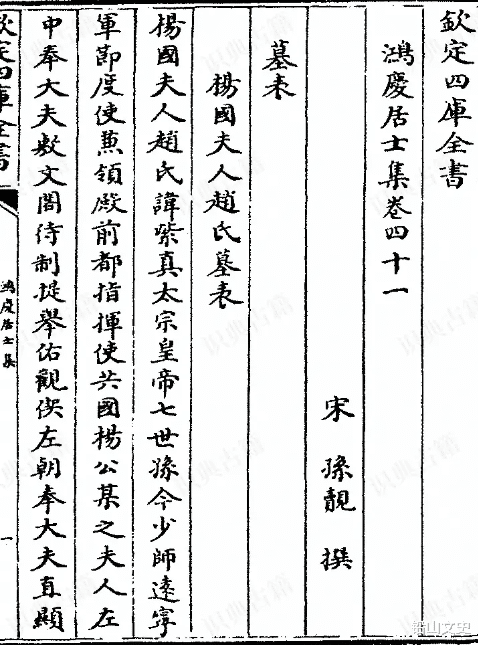 欽定四庫全書
鴻慶居士集卷四十一
宋 孫覿 撰
墓表
楊國夫人趙氏墓表
楊國夫人趙氏諱紫真太宗皇帝七世孫今少師遠寧
軍節度使兼領殿前都指揮使共國楊公某之夫人左
中奉大夫敷文閣待制提舉佑觀偰左朝奉大夫直顯
欽定四庫全書
鴻慶居士集
一
识典古籍